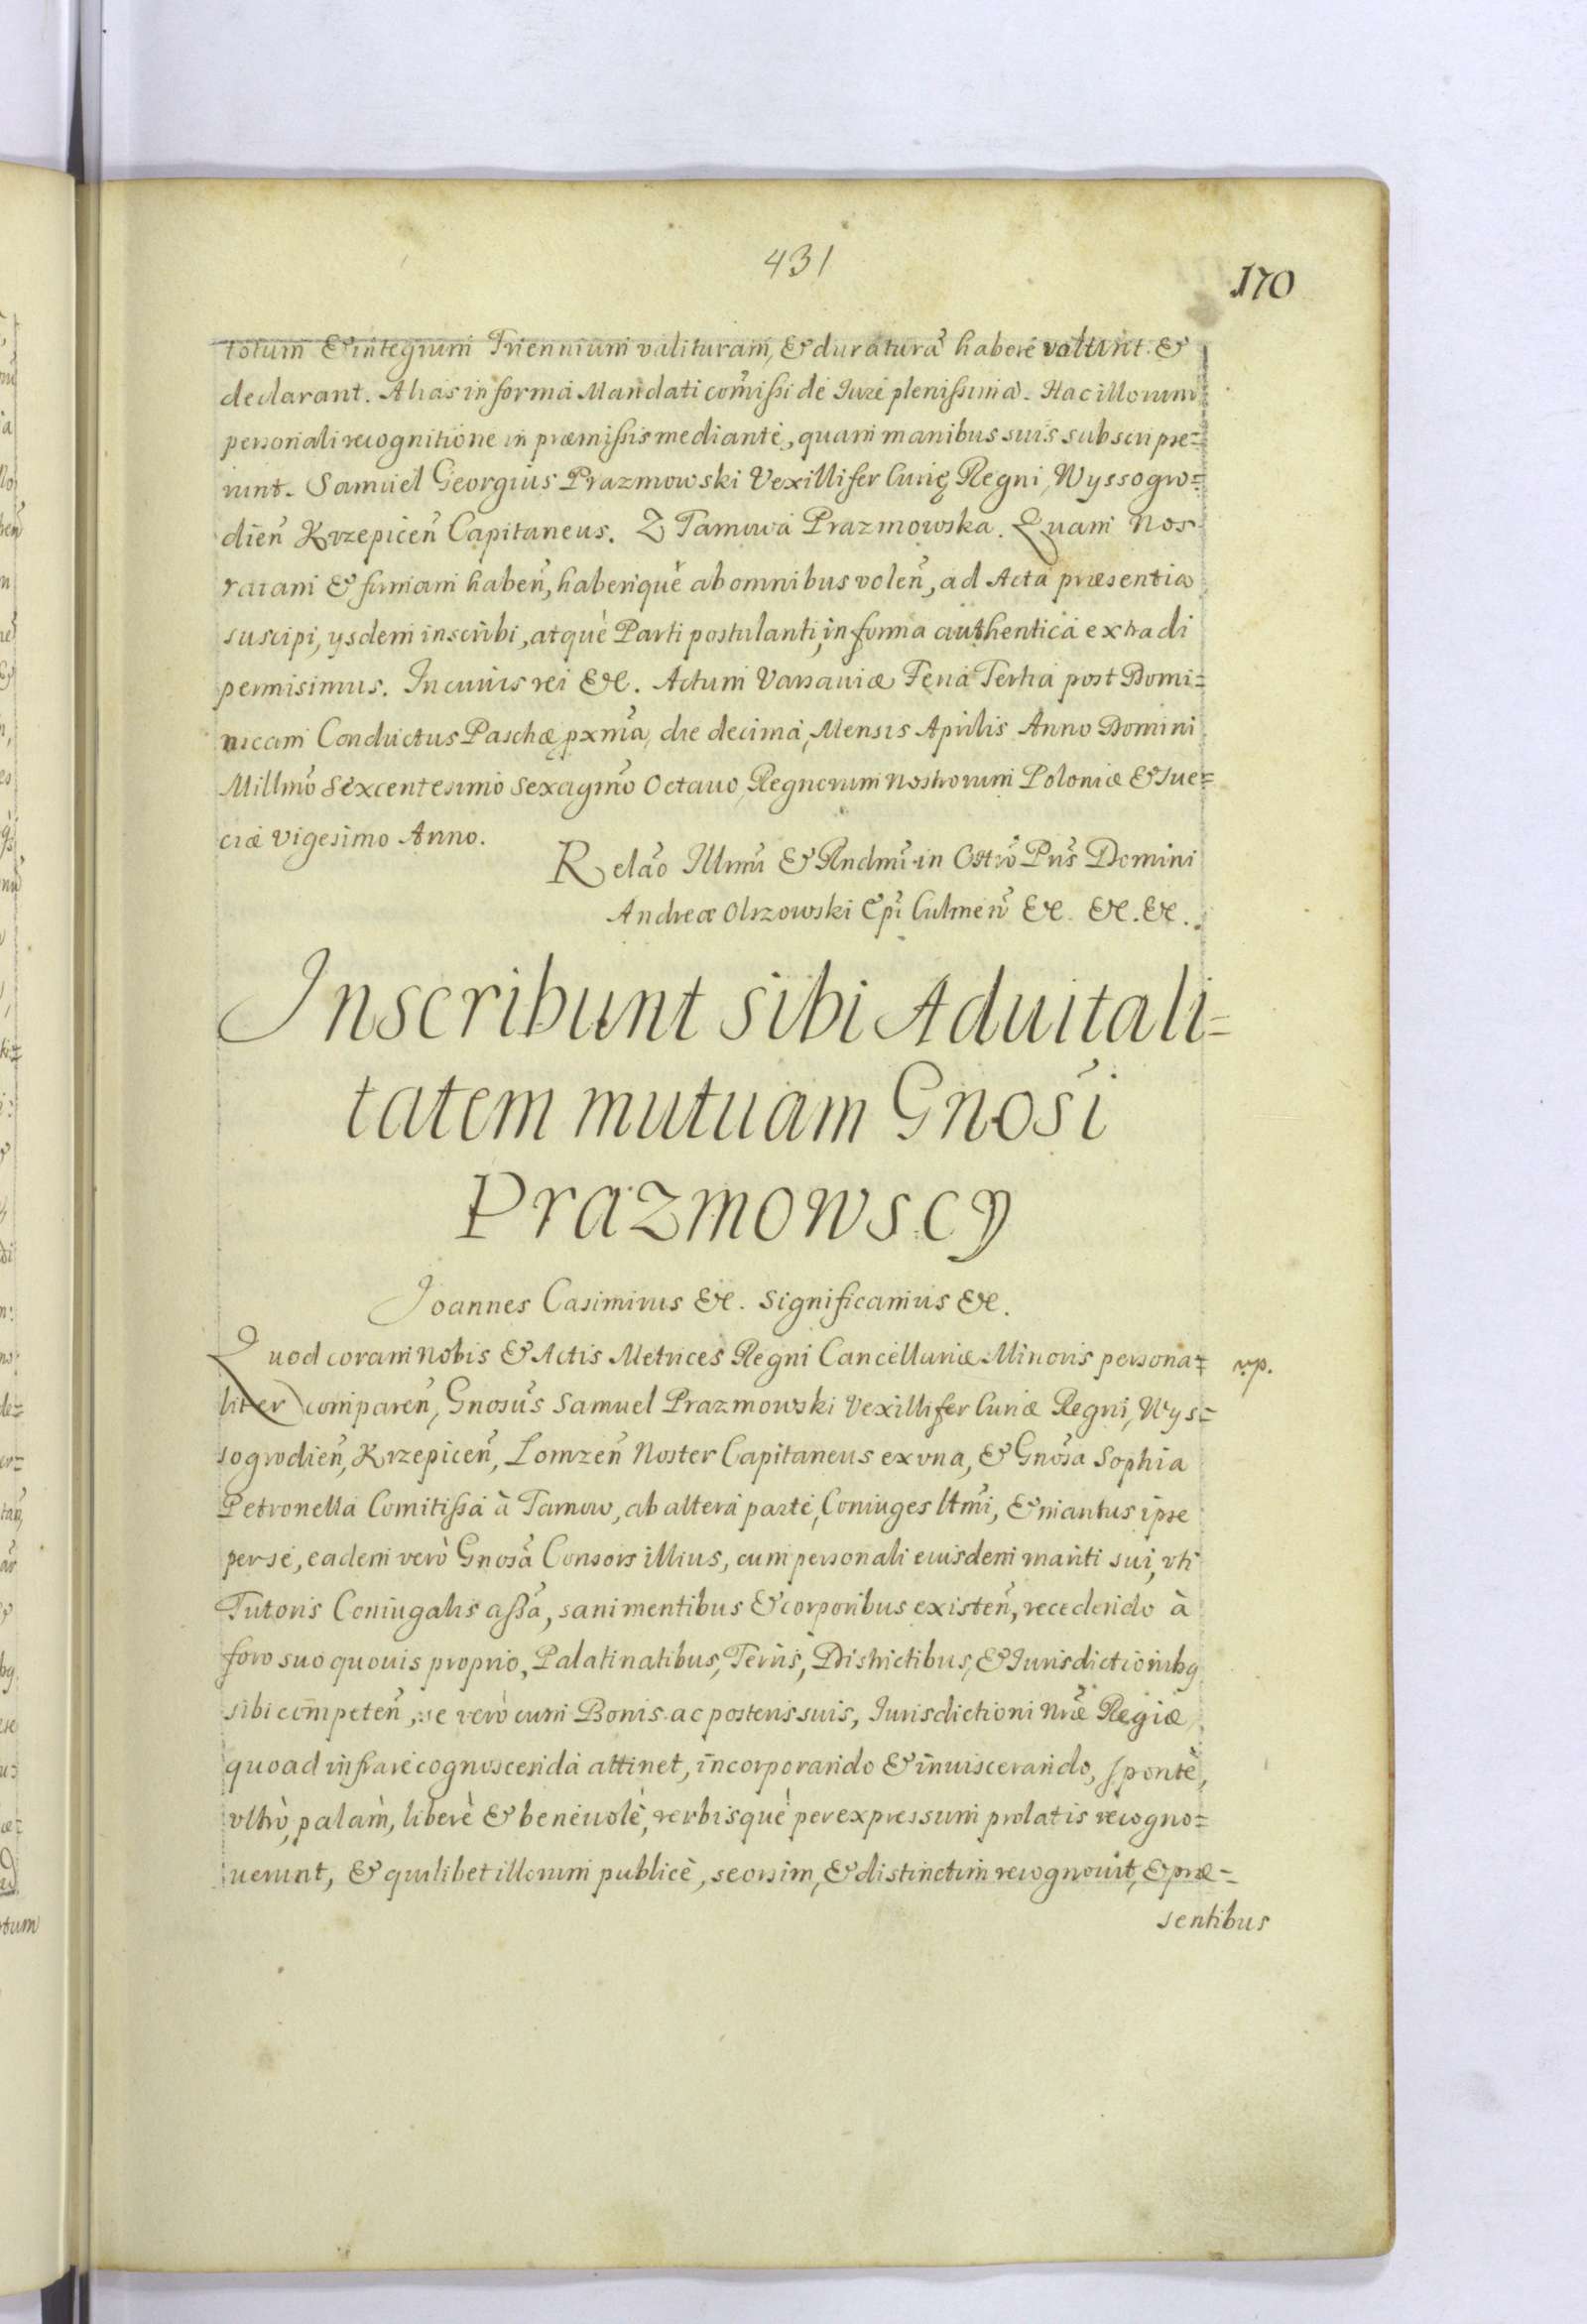 431
170
totum & integrum Triennium valituram, & duraturã habere volunt &
declarant. Alias in forma Mandati com̃issi de Jure plenissima. Hac illorum
personali recognitione in præmissis mediante, quam manibus suis subscripse=
runt. Samuel Georgius Prazmowski Vexillifer Curię Regni, Wyssogro=
dien̄ Krzepicen̄ Capitaneus. Z Tarnowa Prazmowska. Quam Nos
ratam & firmam haben̄, haberique ab omnibus volen̄, ad Acta præsentia
suscipi, ysdem inscribi, atquè Parti postulanti, in forma authentica extradi
permisimus. In cuius rei &c. Actum Varsauiæ Feria Tertia post Domi=
nicam Conductus Paschę pxmã, die decima, Mensis Aprilis Anno Domini
Millmõ Sexcentesimo Sexagmõ Octauo, Regnorum Nostrorum Poloniæ & Sue=
ciæ vigesimo Anno.
Relão Illmi & Rndmi in Chtrõ Pris̃ Domini
Andreæ Olszowski Epĩ Culmen̄ &c. &c. &c.
Inscribunt sibi Aduitali=
tatem mutuam Gnosĩ
Prazmowscy
Joannes Casimirus &c. Significamus &c.
Quod coram Nobis & Actis Metrices Regni Cancellariæ Minoris persona=
rp.
liter comparen̄, Gnosũs Samuel Prazmowski Vexillifer Curiæ Regni, Wys=
sogrodien̄, Krzepicen̄, Lomzen̄ Noster Capitaneus ex vna, & Gnosã Sophia
Petronella Comitissa à Tarnow, ab altera parte, Coniuges ltmĩ, & maritus ipse
per se, eadem verò Gnosã Consors illius, cum personali eiusdem mariti sui, vti
Tutoris Coniugalis assã, sani mentibus & corporibus existen̄, recedendo à
foro suo quouis proprio, Palatinatibus, Terris, Districtibus, & Jurisdictionibq
sibi competen̄, se verò cum Bonis ac posteris suis, Jurisdictioni Nræ̃ Regiæ
quoad infra recognoscenda attinet, incorporando & inuiscerando, sponte,
vltrò, palàm, liberè & beneuolè, verbisquè per expressum prolatis recogno=
uerunt, & quilibet illorum publicè, seorsim, & distinctim recognouit, & præ=
sentibus